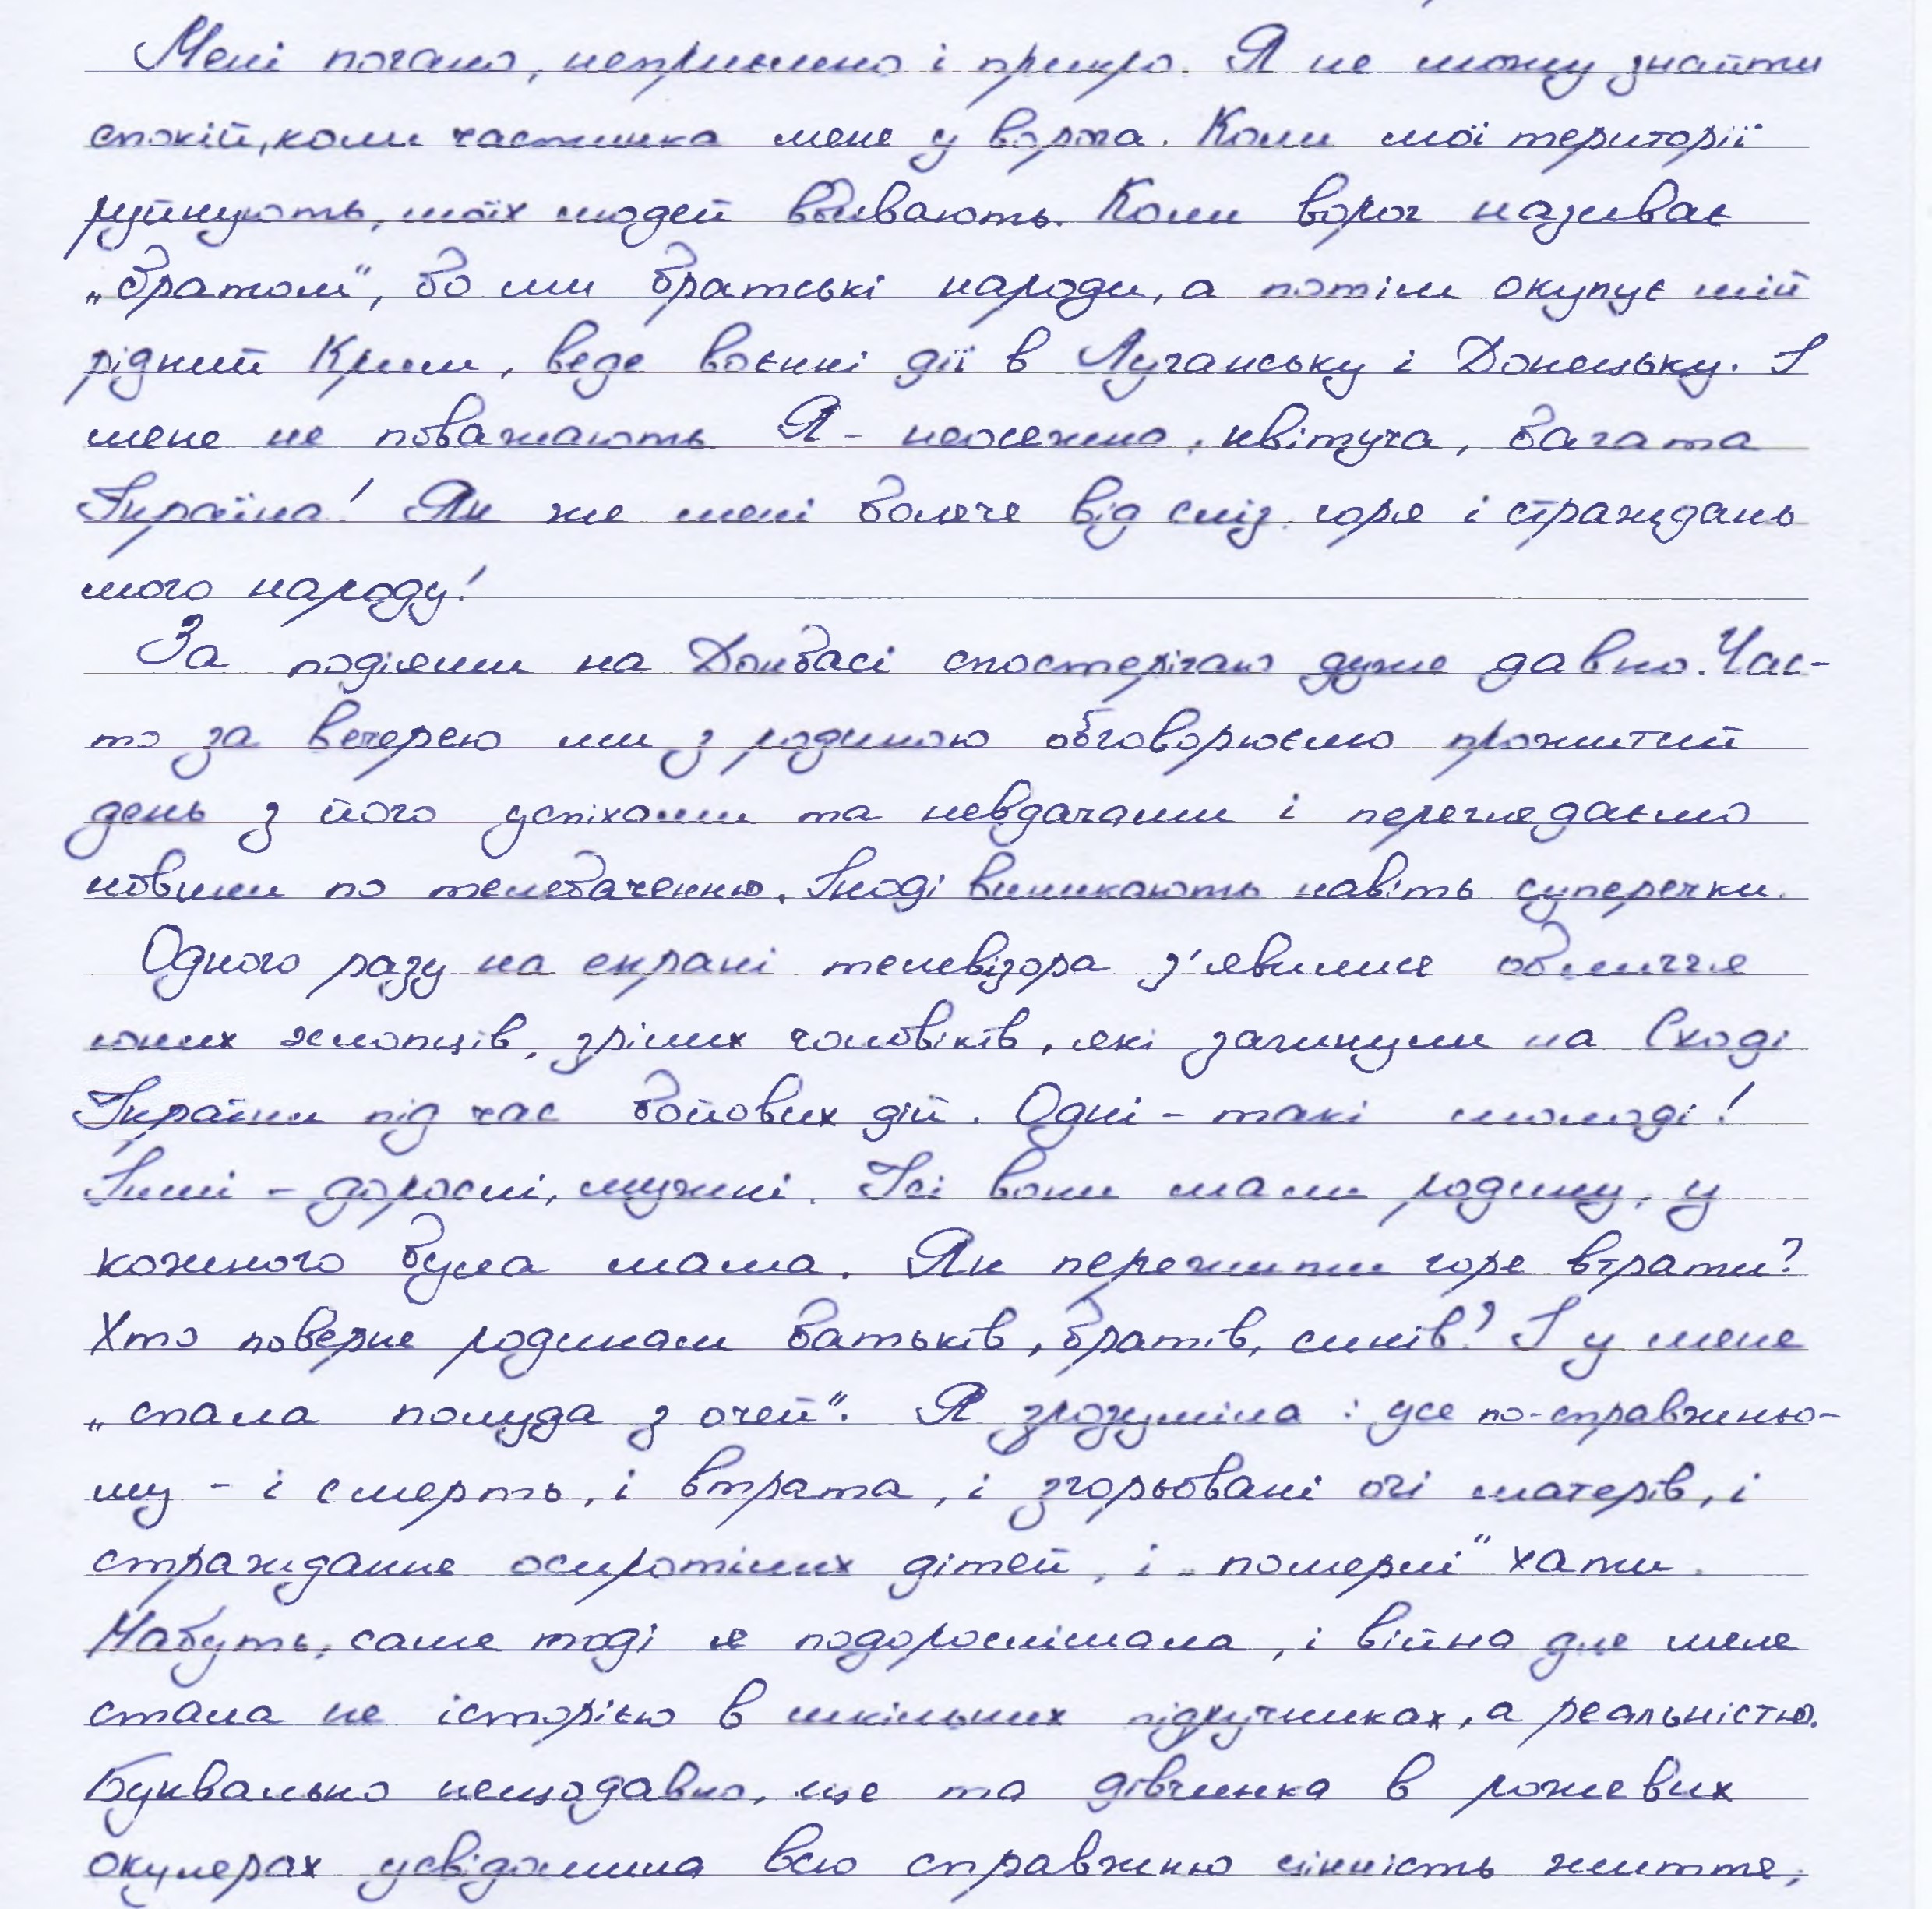 Мені погано, неприємно і прикро. Я не можу знайти
спокій, коли частинка мене у ворога. Коли мої території
руйнують, моїх людей вбивають. Коли ворог називає
„братом“, бо ми братські народи, а потім окупує мій
рідний Крим, веде воєнні дії в Луганську і Донецьку. І
мене не поважають Я - неосяжна, квітуча, багата
Україна! Як же мені боляче від сліз, горя і страждань
мого народу!
За подіями на Донбасі спостерігаю дуже давно. Час-
то за вечерею ми з родиною обговорюємо прожитий
день з його успіхами та невдачами і переглядаємо
новини по телебаченню. Іноді виникають навіть суперечки.
Одного разу на екрані телевізора з'явилися обличчя
юних хлопців, зрілих чоловіків, які загинули на Сході
України під час бойових дій. Одні - такі молоді!
Інші - дорослі, мужні. Усі вони мали родину, у
кожного була мама. Як пережити горе втрати?
Хто поверне родинам батьків, братів, синів? І у мене
„спала полуда з очей“. Я зрозуміла : усе по-справжньо-
му - і смерть, і втрата, і згорьовані очі матерів, і
страждання осиротілих дітей, і „померлі“ хати.
Мабуть, саме тоді я подорослішала, і війна для мене
стала не історією в шкільних підручниках, а реальністю.
Буквально нещодавно, ще та дівчинка в рожевих
окулярах усвідомила всю справжню цінність життя,